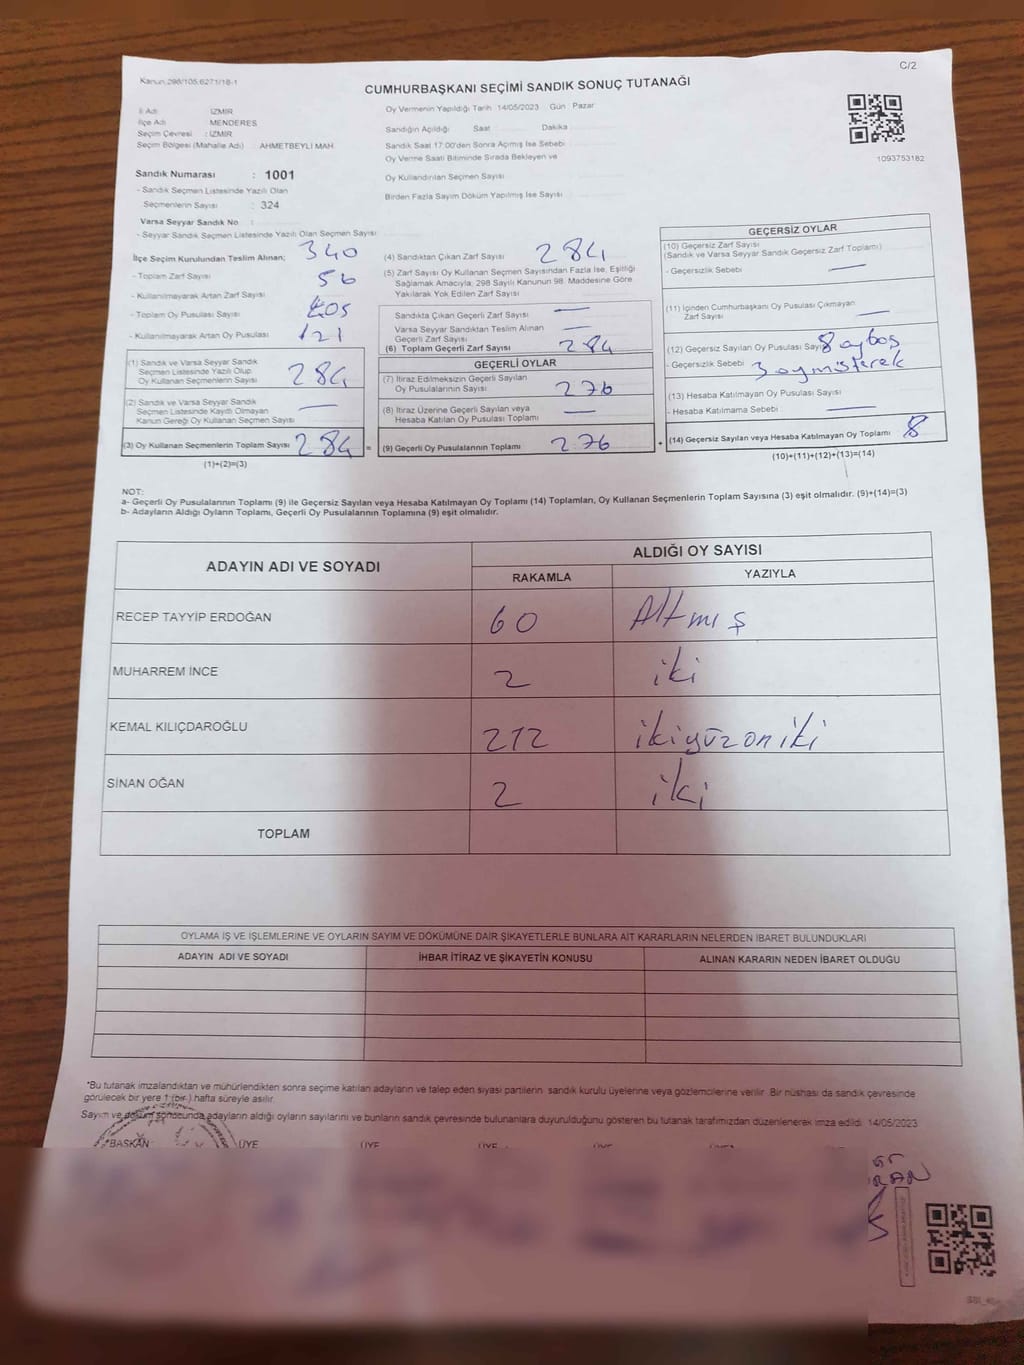 C/2
Kanun:298/105,6271/18-1
CUMHURBAŞKANI SEÇİMİ SANDIK SONUÇ TUTANAĞI
İl Adı : İZMİR
İlçe Adı : MENDERES
Seçim Çevresi : İZMİR
Seçim Bölgesi (Mahalle Adı) : AHMETBEYLİ MAH.
Oy Vermenin Yapıldığı Tarih 14/05/2023 Gün Pazar
Sandığın Açıldığı Saat Dakika
Sandık Saat 17:00'den Sonra Açılmış İse Sebebi
Oy Verme Saati Bitiminde Sırada Bekleyen ve
Oy Kullandırılan Seçmen Sayısı
Birden Fazla Sayım Döküm Yapılmış İse Sayısı
1093753182
Sandık Numarası : 1001
- Sandık Seçmen Listesinde Yazılı Olan
Seçmenlerin Sayısı : 324
Varsa Seyyar Sandık No :
- Seyyar Sandık Seçmen Listesinde Yazılı Olan Seçmen Sayısı
İlçe Seçim Kurulundan Teslim Alınan; 340
- Toplam Zarf Sayısı
- Kullanılmayarak Artan Zarf Sayısı 56
- Toplam Oy Pusulası Sayısı 405
- Kullanılmayarak Artan Oy Pusulası 121
(1) Sandık ve Varsa Seyyar Sandık
Seçmen Listesinde Yazılı Olup
Oy Kullanan Seçmenlerin Sayısı 284
(2) Sandık ve Varsa Seyyar Sandık
Seçmen Listesinde Kayıtlı Olmayan
Kanun Gereği Oy Kullanan Seçmen Sayısı —
(3) Oy Kullanan Seçmenlerin Toplam Sayısı 284 =
(1)+(2)=(3)
(4) Sandıktan Çıkan Zarf Sayısı 284
(5) Zarf Sayısı Oy Kullanan Seçmen Sayısından Fazla İse, Eşitliği
Sağlamak Amacıyla; 298 Sayılı Kanunun 98. Maddesine Göre
Yakılarak Yok Edilen Zarf Sayısı —
Sandıkta Çıkan Geçerli Zarf Sayısı —
Varsa Seyyar Sandıktan Teslim Alınan
Geçerli Zarf Sayısı —
(6) Toplam Geçerli Zarf Sayısı 284
GEÇERLİ OYLAR
(7) İtiraz Edilmeksizin Geçerli Sayılan
Oy Pusulalarının Sayısı 276
(8) İtiraz Üzerine Geçerli Sayılan veya
Hesaba Katılan Oy Pusulası Toplamı —
(9) Geçerli Oy Pusulalarının Toplamı 276 +
GEÇERSİZ OYLAR
(10) Geçersiz Zarf Sayısı
(Sandık ve Varsa Seyyar Sandık Geçersiz Zarf Toplamı)
- Geçersizlik Sebebi —
(11) İçinden Cumhurbaşkanı Oy Pusulası Çıkmayan
Zarf Sayısı —
(12) Geçersiz Sayılan Oy Pusulası Sayısı 8 oy boş
- Geçersizlik Sebebi 3 oy müşterek
(13) Hesaba Katılmayan Oy Pusulası Sayısı
- Hesaba Katılmama Sebebi —
(14) Geçersiz Sayılan veya Hesaba Katılmayan Oy Toplamı 8
(10)+(11)+(12)+(13)=(14)
NOT:
a- Geçerli Oy Pusulalarının Toplamı (9) ile Geçersiz Sayılan veya Hesaba Katılmayan Oy Toplamı (14) Toplamları, Oy Kullanan Seçmenlerin Toplam Sayısına (3) eşit olmalıdır. (9)+(14)=(3)
b- Adayların Aldığı Oyların Toplamı, Geçerli Oy Pusulalarının Toplamına (9) eşit olmalıdır.
ADAYIN ADI VE SOYADI
ALDIĞI OY SAYISI
RAKAMLA YAZIYLA
RECEP TAYYİP ERDOĞAN 60 Altmış
MUHARREM İNCE 2 iki
KEMAL KILIÇDAROĞLU 212 ikiyüzoniki
SİNAN OĞAN 2 iki
TOPLAM
OYLAMA İŞ VE İŞLEMLERİNE VE OYLARIN SAYIM VE DÖKÜMÜNE DAİR ŞİKAYETLERLE BUNLARA AİT KARARLARIN NELERDEN İBARET BULUNDUKLARI
ADAYIN ADI VE SOYADI İHBAR İTİRAZ VE ŞİKAYETİN KONUSU ALINAN KARARIN NEDEN İBARET OLDUĞU
*Bu tutanak imzalandıktan ve mühürlendikten sonra seçime katılan adayların ve talep eden siyasi partilerin sandık kurulu üyelerine veya gözlemcilerine verilir. Bir nüshası da sandık çevresinde
görülecek bir yere 1 (bir ) hafta süreyle asılır.
Sayım ve döküm sonucunda adayların aldığı oyların sayılarını ve bunların sandık çevresinde bulunanlara duyurulduğunu gösteren bu tutanak tarafımızdan düzenlenerek imza edildi. 14/05/2023
BAŞKAN ÜYE ÜYE ÜYE ÜYE ÜYE